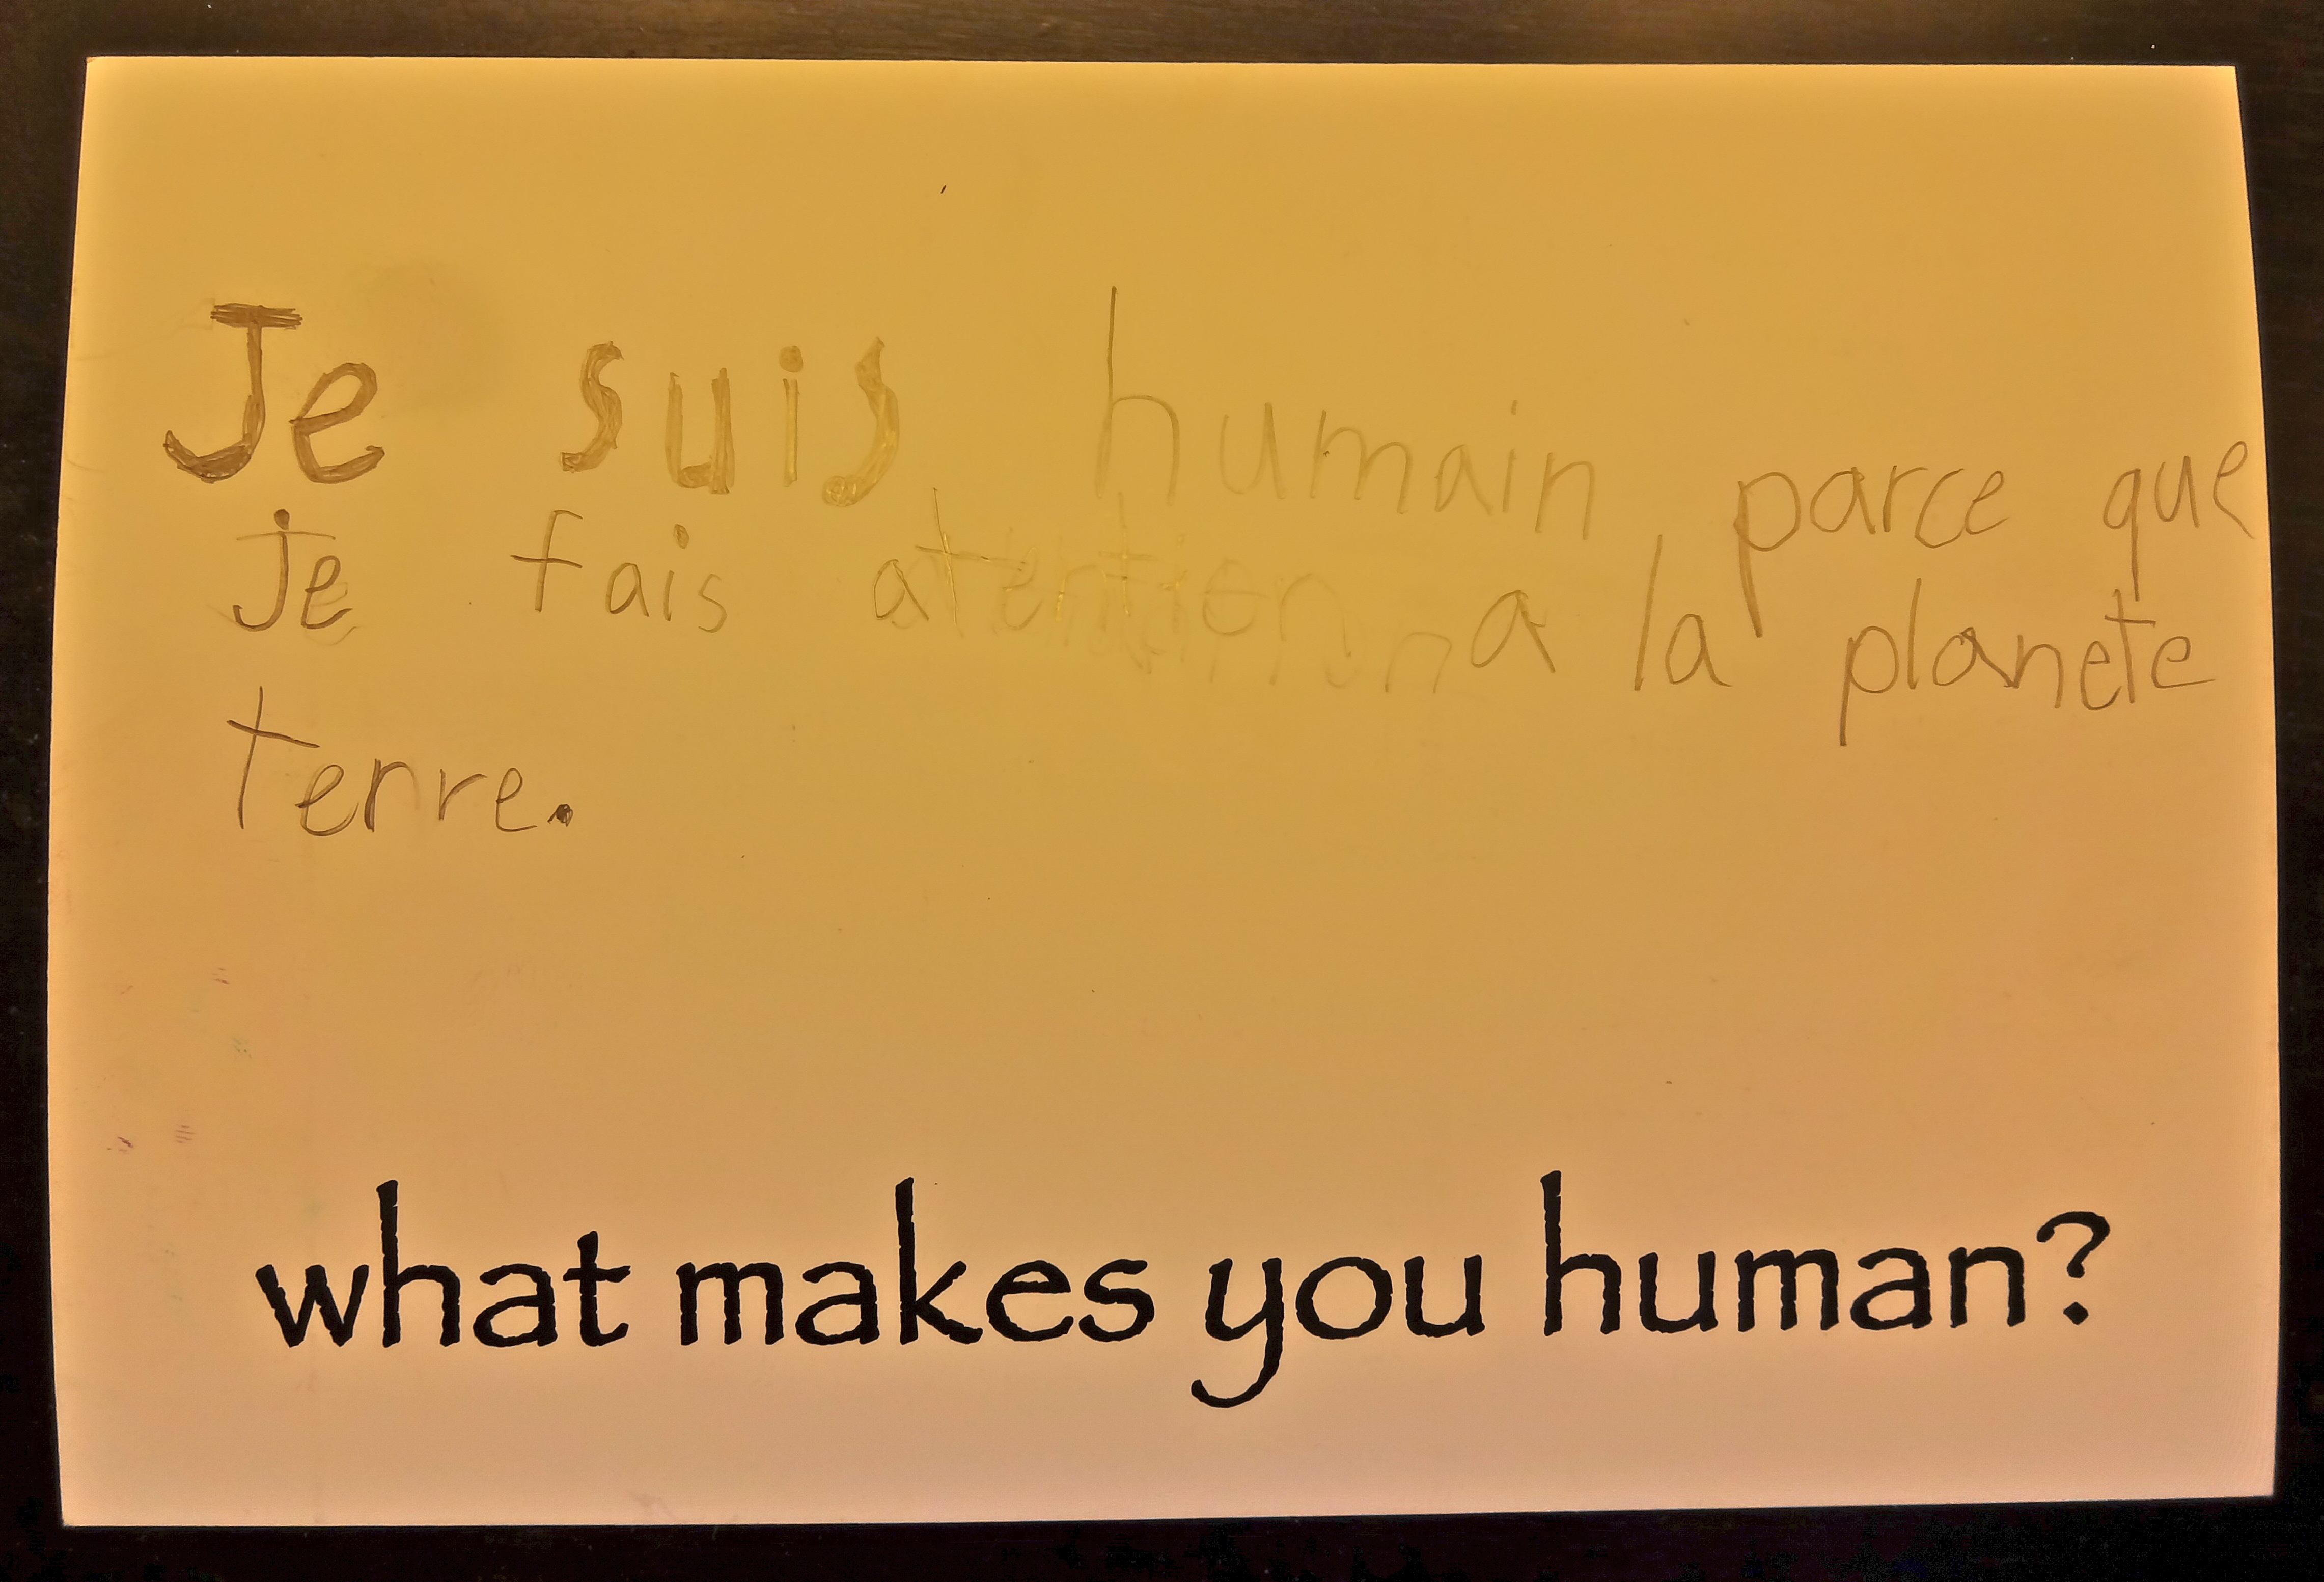 Je suis humain parce que
je fais atention a la planete
terre.
what makes you human?